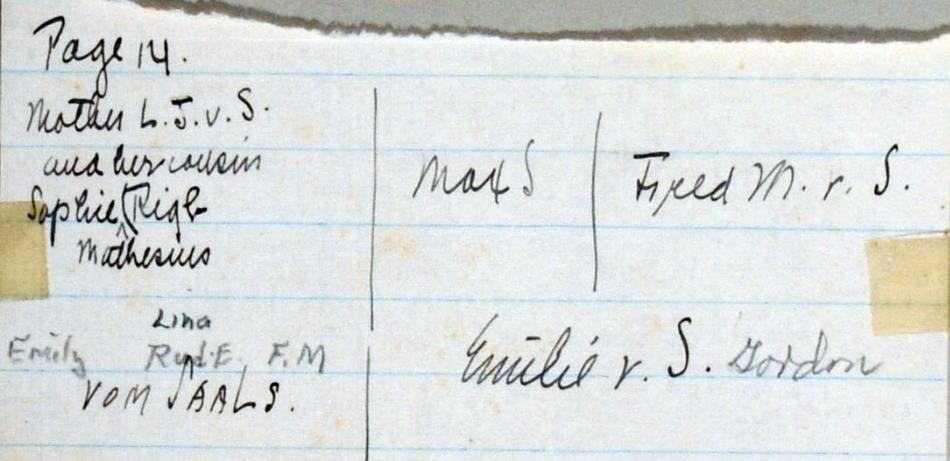 Page 14.
Mother L. J. v. S.
and her cousin
Sophie (Rigl-
Mathesius
Max S
Fred M. v. S.
Lina
Emily Rud. E. F. M
VOM SAALS.
Emilie v. S. Gordon